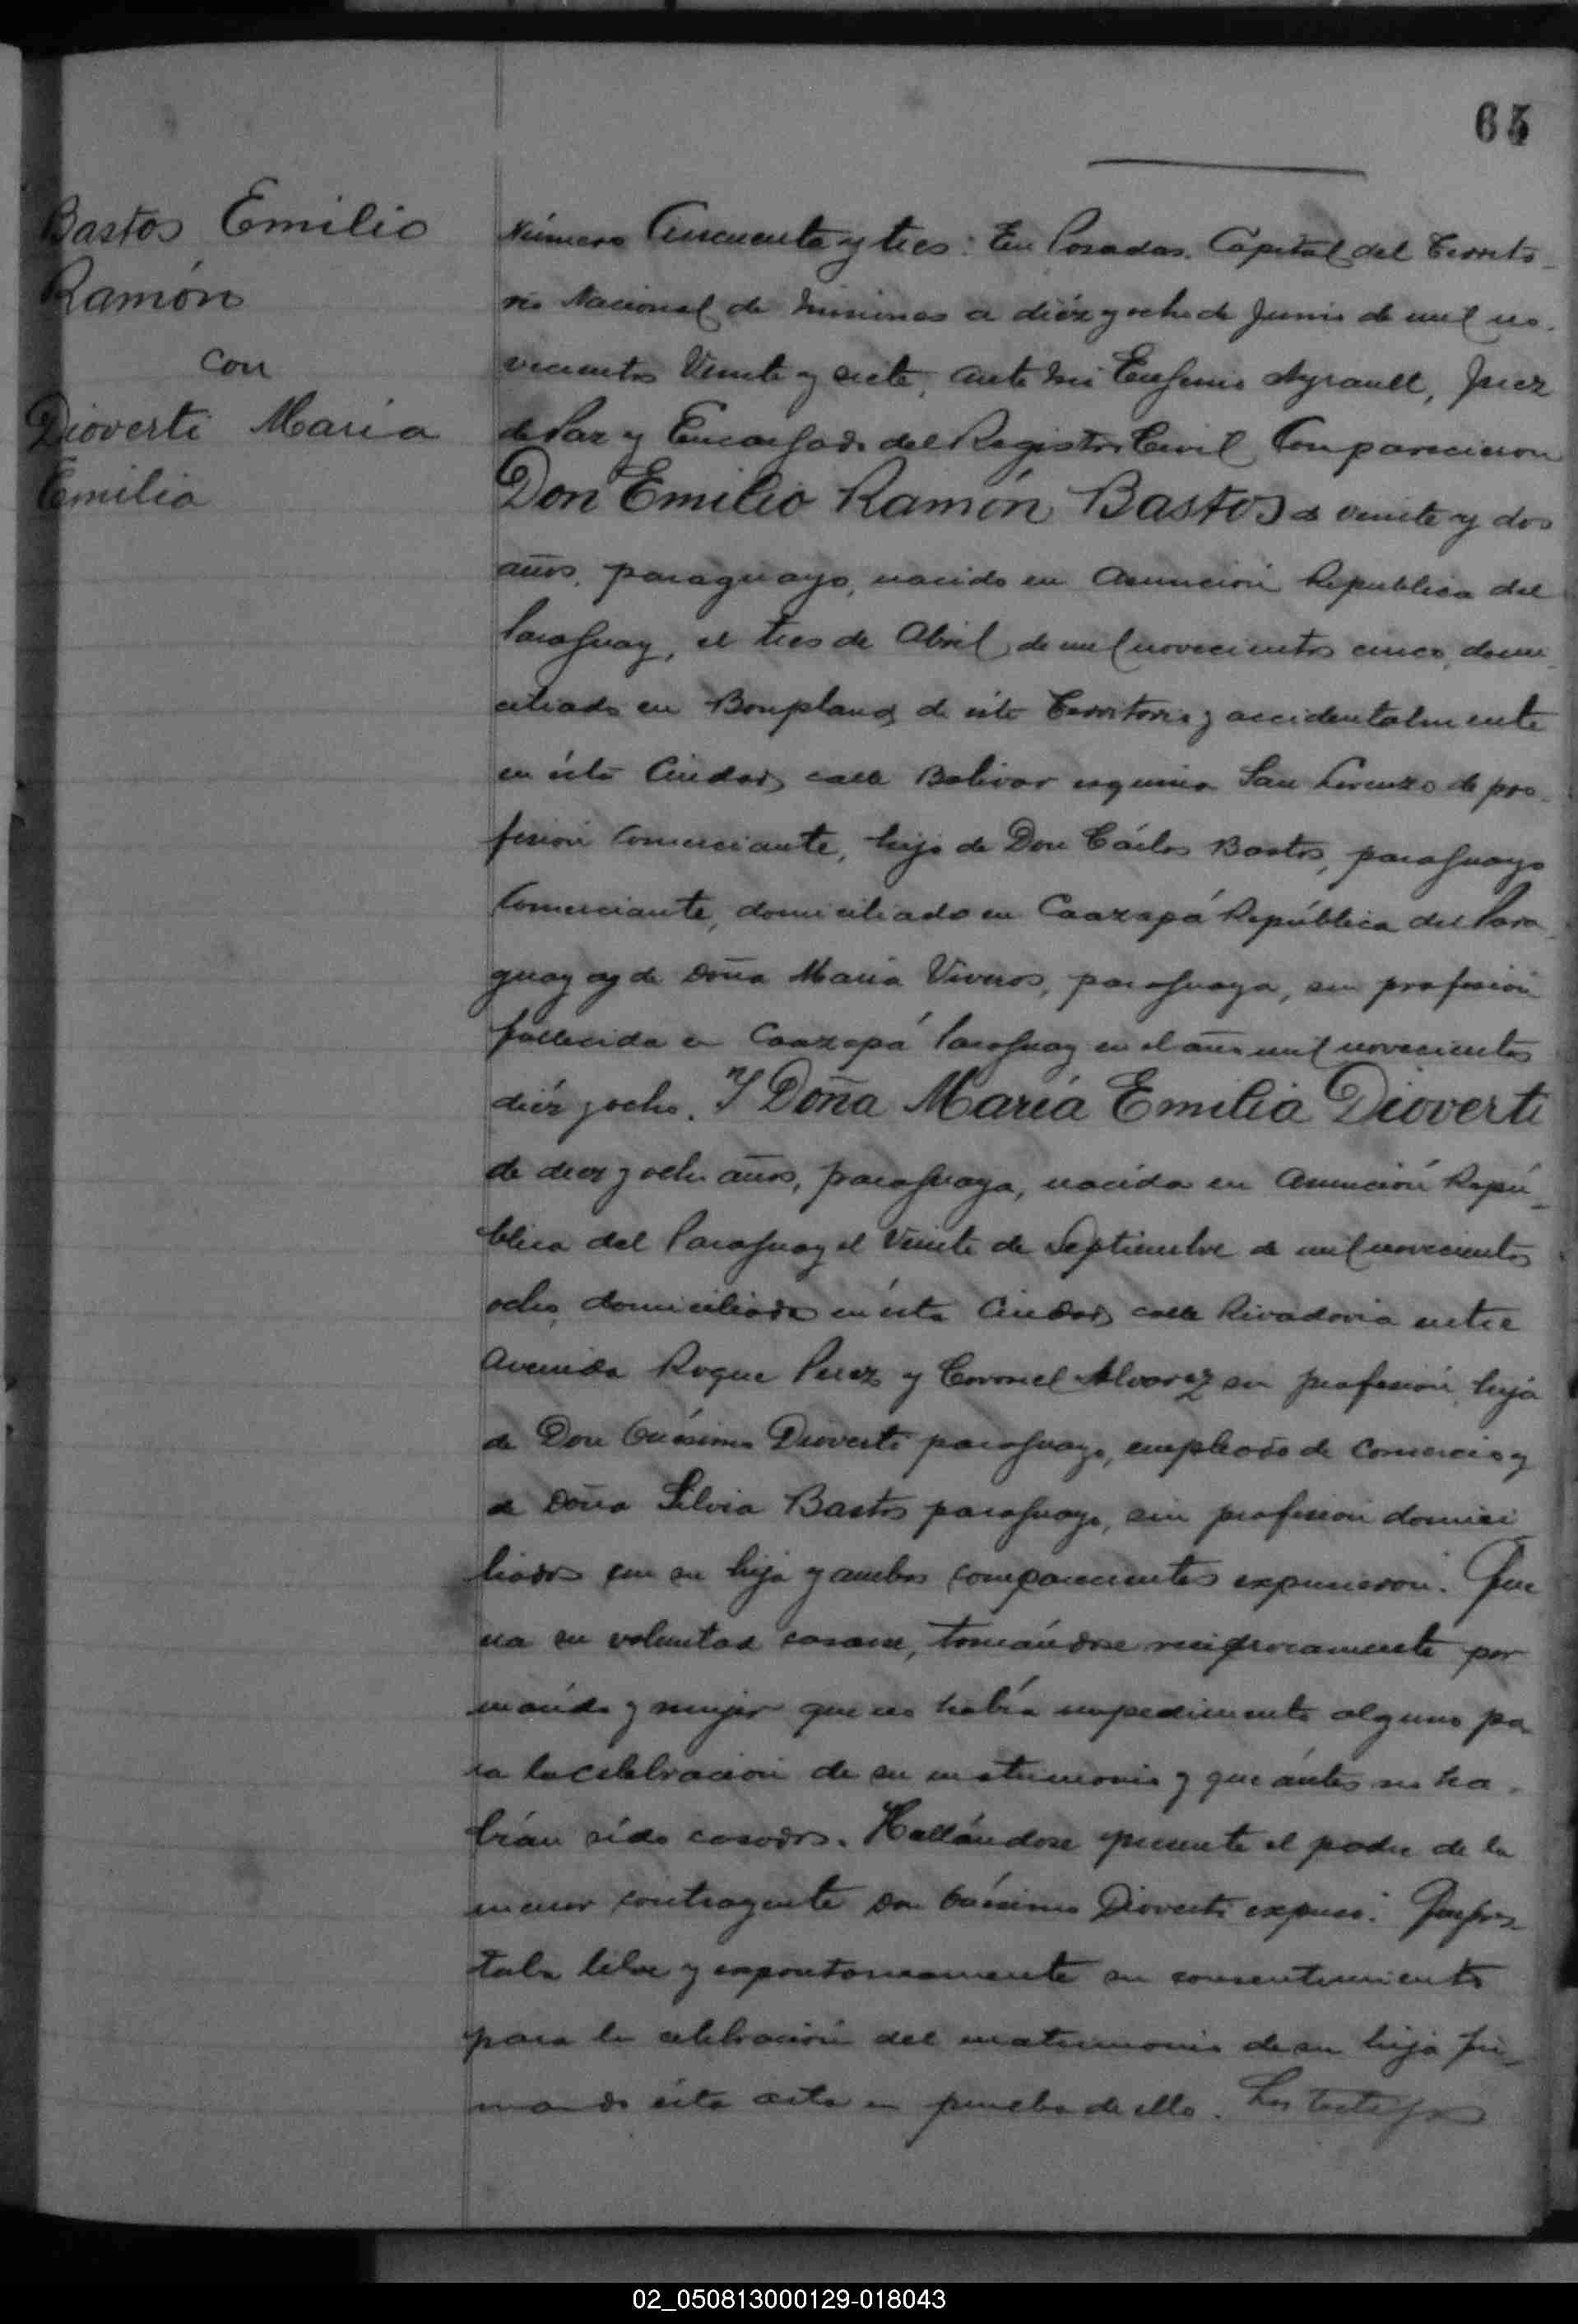 65
Bastos Emilio
Ramón
con
Dioverti Maria
Emilia
Número Cincuenta y tres: En Posadas, Capital del Territo-
rio Nacional de Misiones a diéz y ocho de Junio de mil no-
vecientos Veinte y siete, ante mi Eugenio Ayrault, Juez
de Paz y Encargado del Registro Civil Comparecieron
Don Emilio Ramón Bastos de veinte y dos
años, paraguayo, nacido en Asunción República del
Paraguay, el tres de Abril de mil novecientos cinco, domi-
ciliado en Bonpland de éste Territorio y accidentalmente
en ésta Ciudad calle Bolivar esquina San Lorenzo de pro-
fesión Comerciante, hijo de Don Cárlos Bastos, paraguayo
Comerciante, domiciliado en Caazapá República del Para-
guay y de Doña Maria Viveros, paraguaya, sin profesión
fallecida en Caazapá Paraguay en el año mil novecientos
diéz y ocho. Y Doña María Emilia Dioverti
de diez y ocho años, paraguaya, nacida en Asunción Repú-
blica del Paraguay el Veinte de Septiembre de mil novecientos
ocho, domiciliada en ésta Ciudad calle Rivadavia entre
Avenida Roque Perez y Coronel Alvarez sin profesión, hija
de Don Onésimo Dioverti paraguayo, empleado de Comercio y
de Doña Silvia Bastos paraguaya, sin profesión domici
liados con su hija y ambos comparecientes expusieron: Que
era su voluntad casarse, tomándose reciprocamente por
marido y mujer que no había impedimento alguno pa
ra la celebración de su matrimonio y que ántes no ha-
bían sido casados. Hallándose presente el padre de la
menor contrayente Don Onésimo Dioverti expuso: Que pres
taba libre y expontaneamente su consentimiento
para la celebración del matrimonio de su hija fir-
mando ésta acta en prueba de ello. Los testigos
02_050813000129-018043